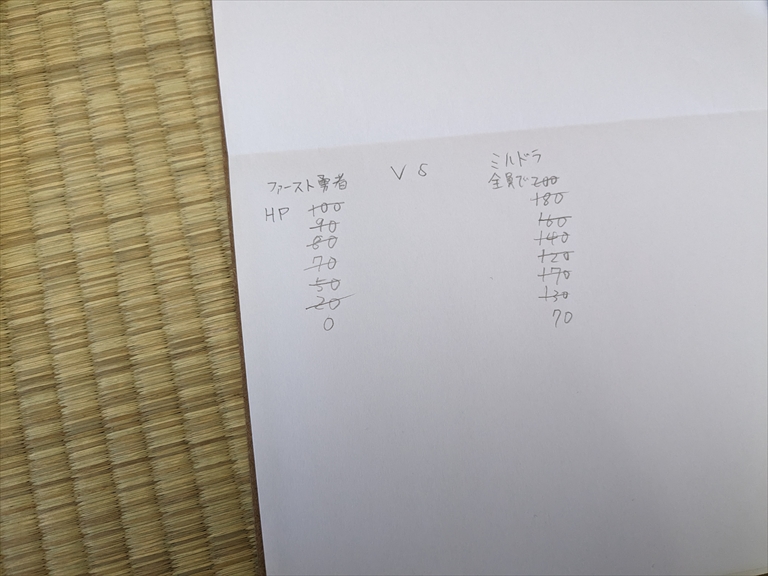 ファースト勇者 VS ミルドラ
HP 100 全員で200
90 180
80 160
70 140
50 120
20 170
0 130
70